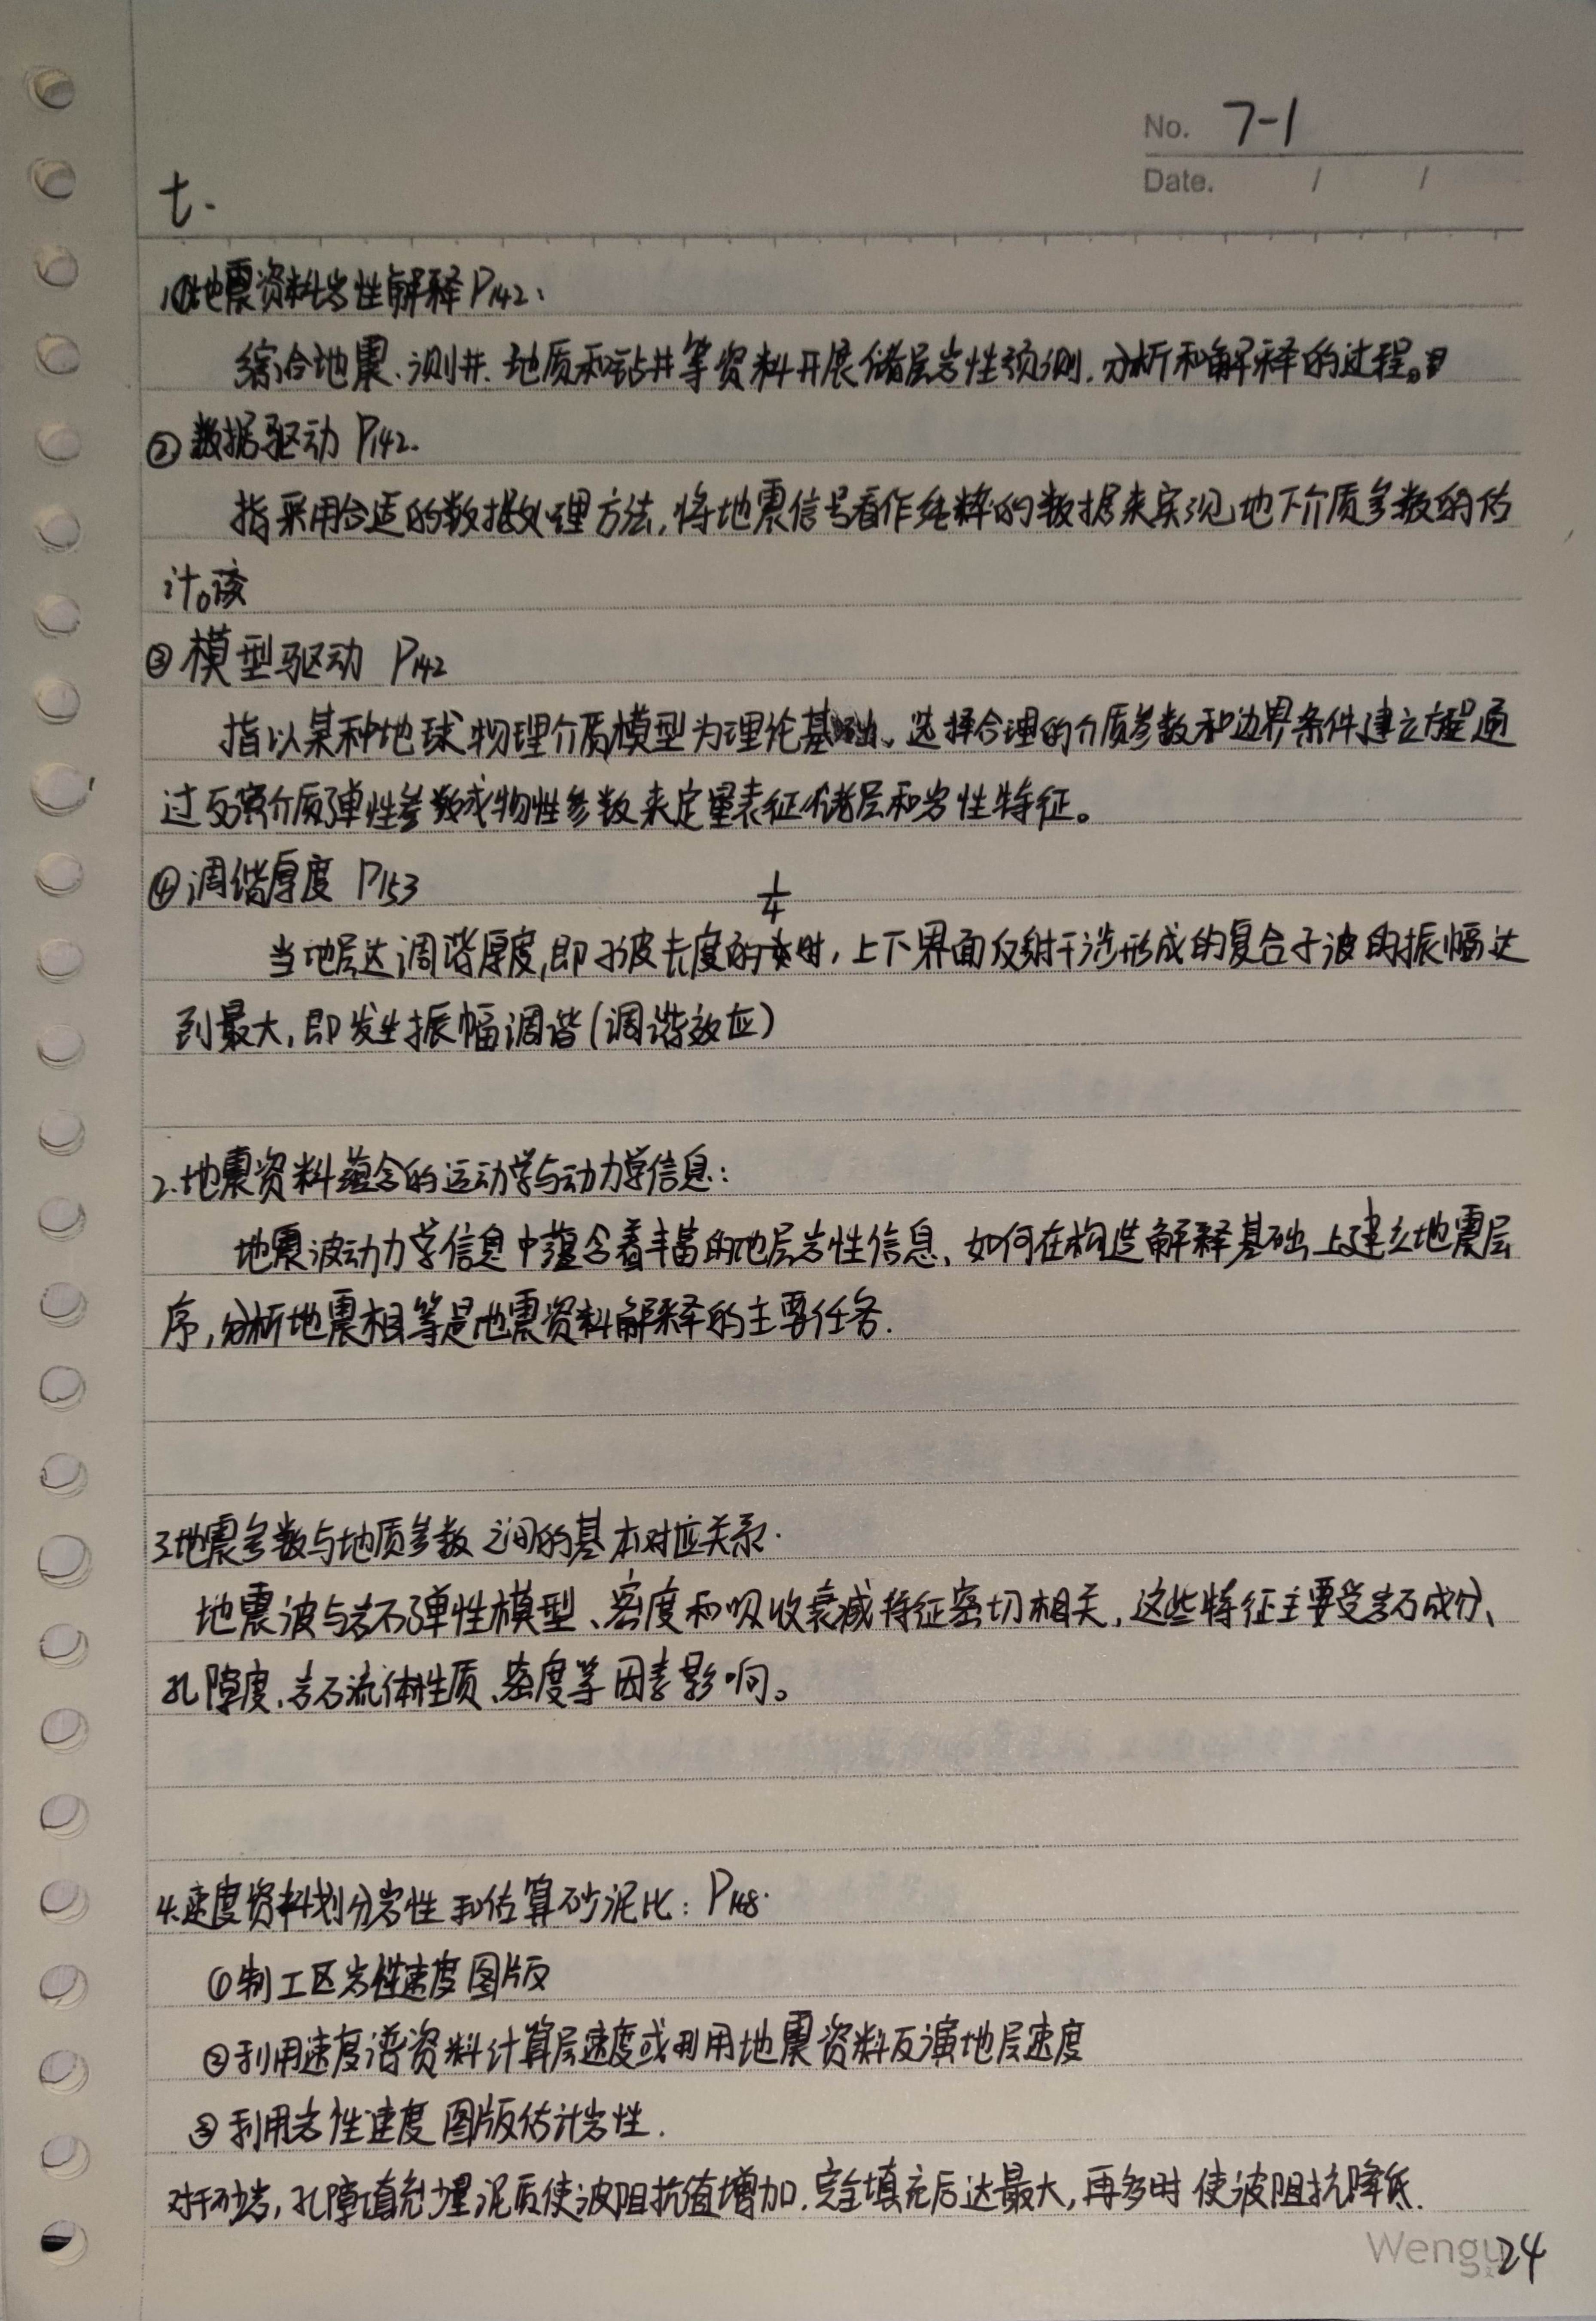 No. 7-1
Date. / /
七.
1.①地震资料岩性解释P142:
综合地震、测井、地质和钻井等资料开展储层岩性预测、分析和解释的过程。
② 数据驱动 P142.
指采用合适的数据处理方法,将地震信号看作纯粹的数据来实现地下介质参数的估
计。该
③ 模型驱动 P142
指以某种地球物理介质模型为理论基础、选择合理的介质参数和边界条件建立方程通
过反演介质弹性参数或物性参数来定量表征储层和岩性特征。
④调谐厚度 P153
当地层达调谐厚度,即子波长度的1/4时,上下界面反射干涉形成的复合子波的振幅达
到最大,即发生振幅调谐(调谐效应)
2.地震资料蕴含的运动学与动力学信息:
地震波动力学信息中蕴含着丰富的地层岩性信息、如何在构造解释基础上建立地震层
序,分析地震相等是地震资料解释的主要任务.
3.地震参数与地质参数之间的基本对应关系.
地震波与岩石弹性模型、密度和吸收衰减特征密切相关,这些特征主要受岩石成分、
孔隙度、岩石流体性质、密度等因素影响。
4.速度资料划分岩性和估算砂泥比: P148.
①制工区岩性速度图版
②利用速度谱资料计算层速度或利用地震资料反演地层速度
③利用岩性速度图版估计岩性.
对于砂岩,孔隙填充少量泥质使波阻抗值增加.完全填充后达最大,再多时使波阻抗降低.
Wengu
24